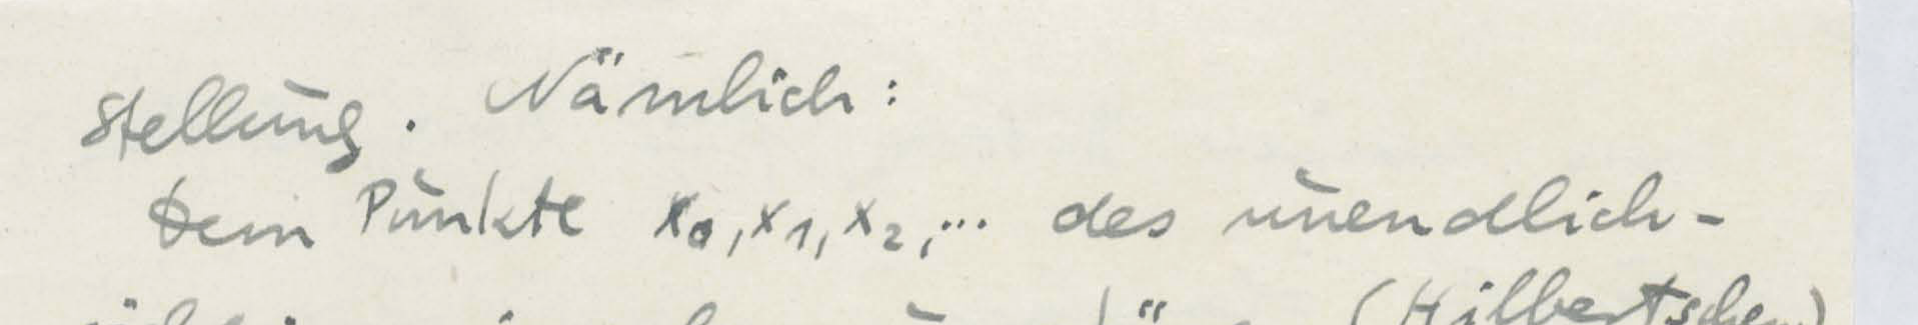 stellung. Nämlich:
Dem Punkte x₀, x₁, x₂, ... des unendlich-
(Hilbertschen)